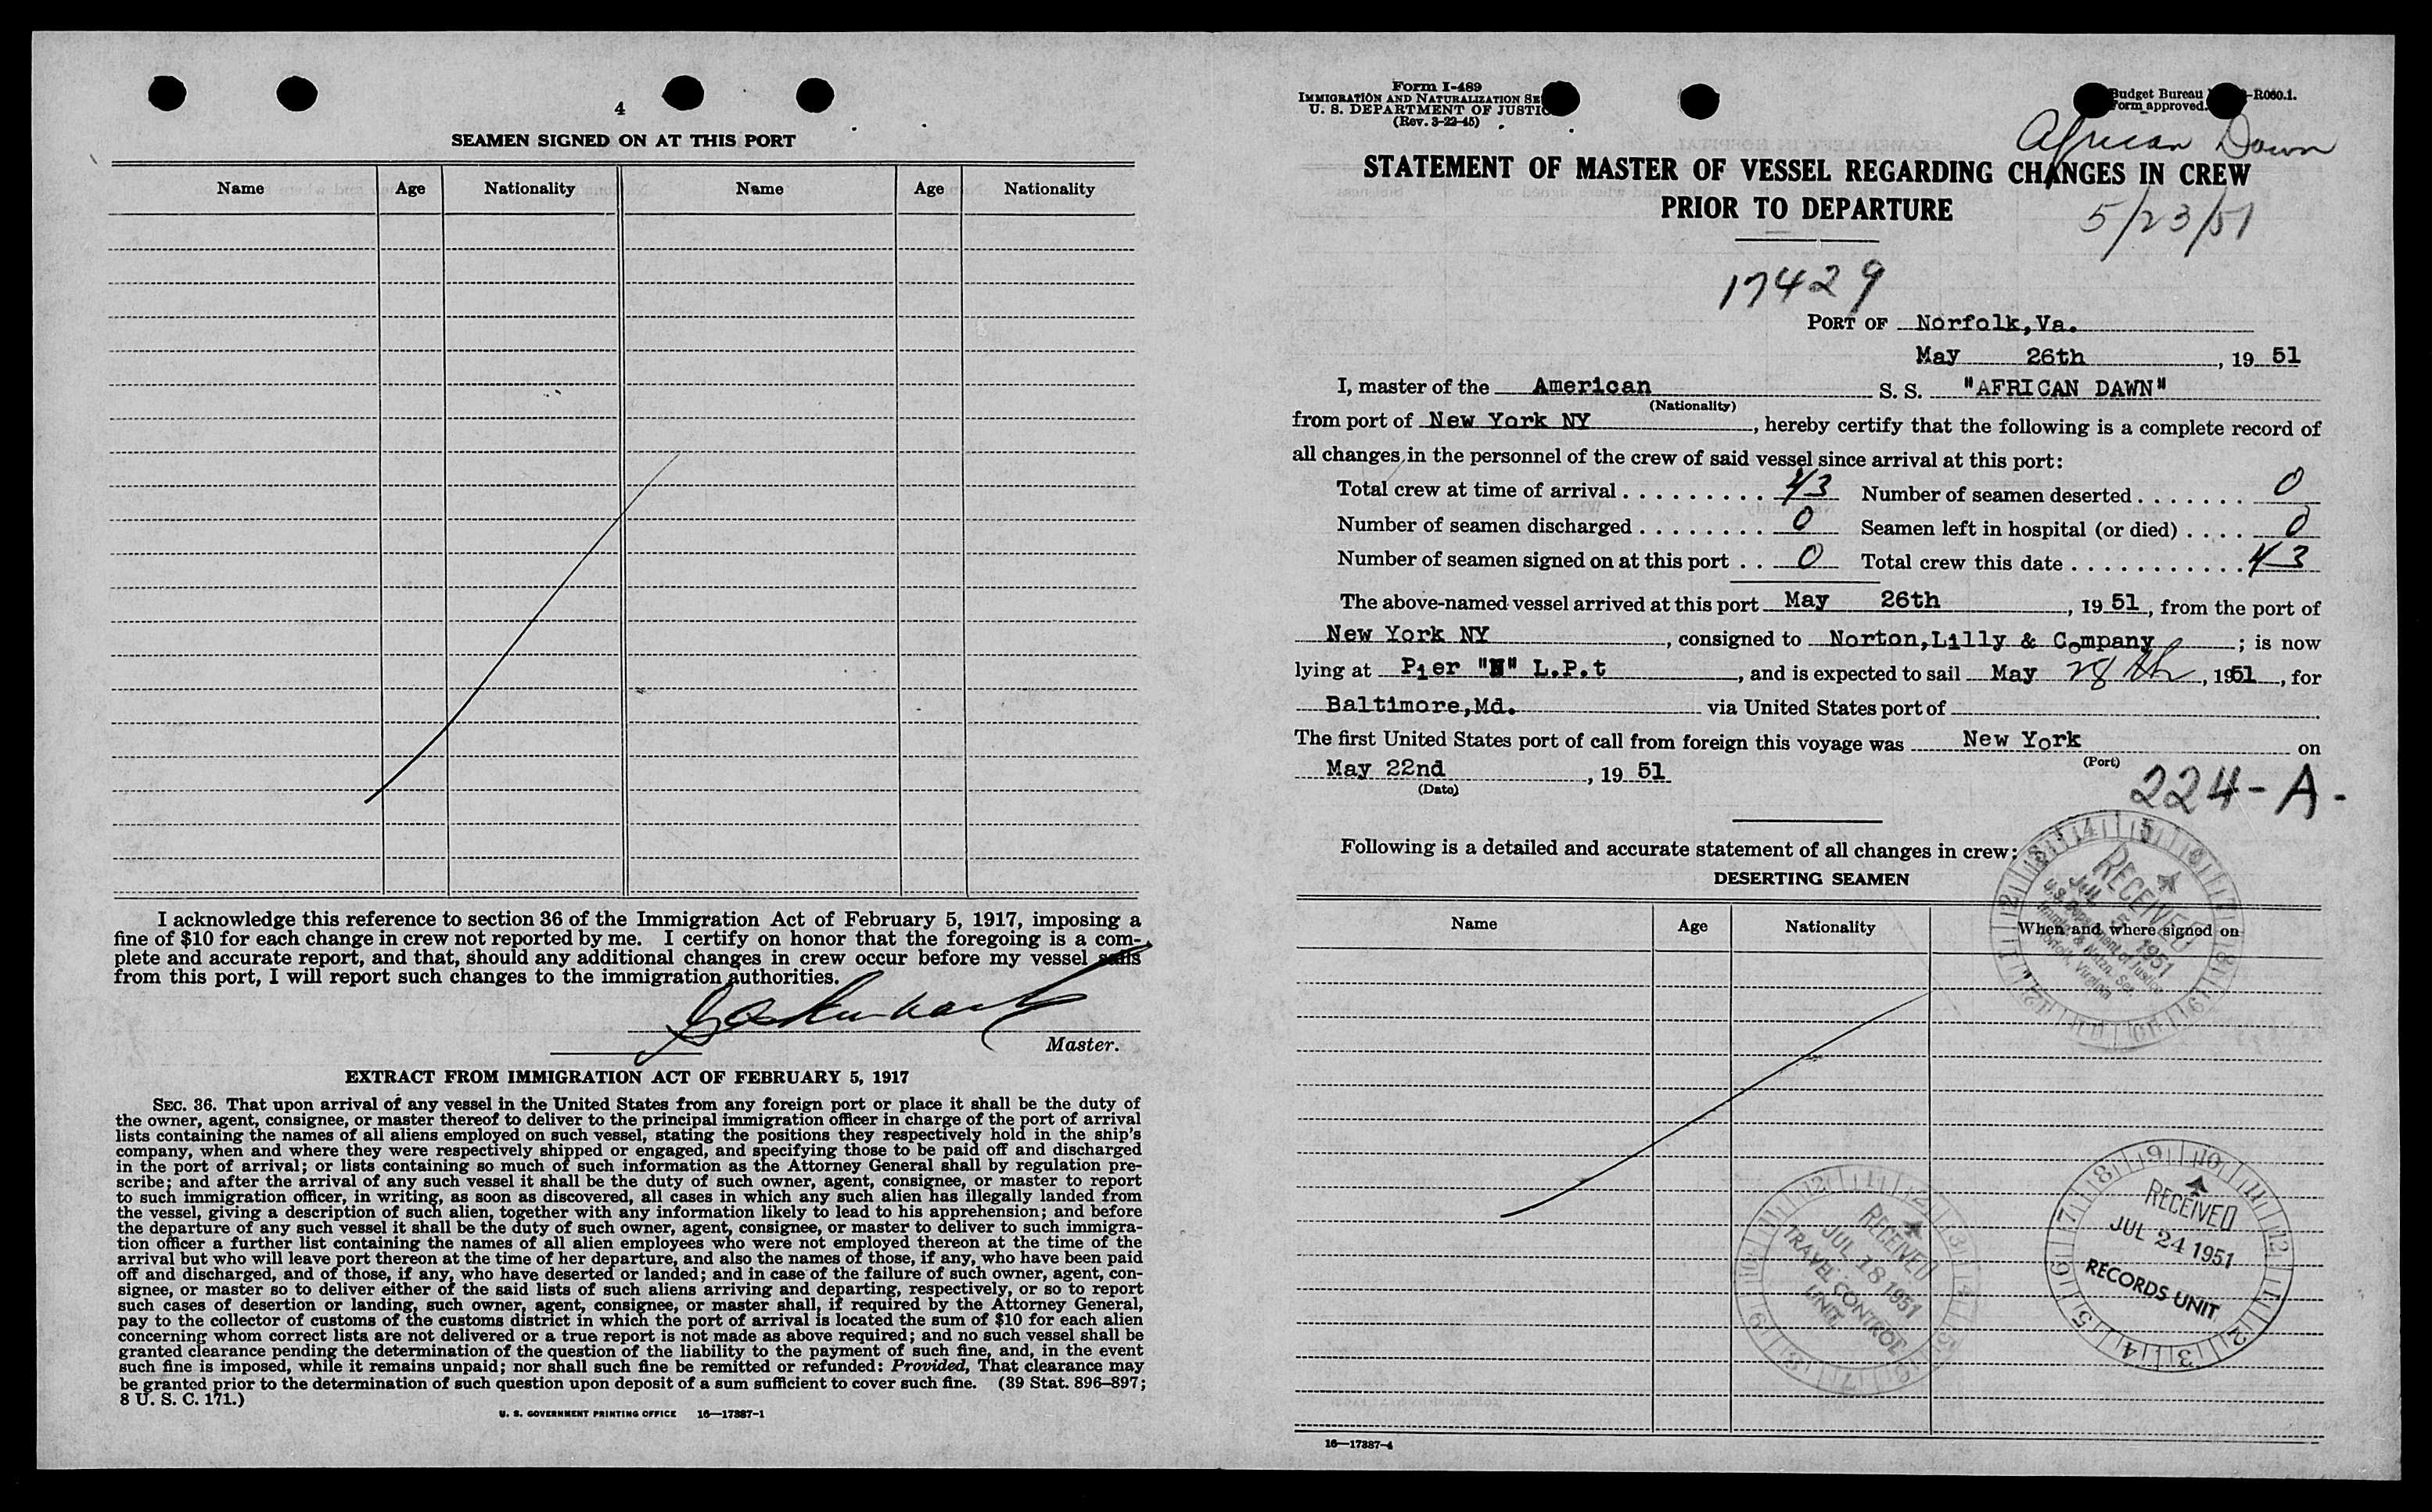 4
SEAMEN SIGNED ON AT THIS PORT
Name Age Nationality Name Age Nationality
I acknowledge this reference to section 36 of the Immigration Act of February 5, 1917, imposing a
fine of $10 for each change in crew not reported by me. I certify on honor that the foregoing is a com-
plete and accurate report, and that, should any additional changes in crew occur before my vessel sails
from this port, I will report such changes to the immigration authorities.
Master.
EXTRACT FROM IMMIGRATION ACT OF FEBRUARY 5, 1917
SEC. 36. That upon arrival of any vessel in the United States from any foreign port or place it shall be the duty of
the owner, agent, consignee, or master thereof to deliver to the principal immigration officer in charge of the port of arrival
lists containing the names of all aliens employed on such vessel, stating the positions they respectively hold in the ship's
company, when and where they were respectively shipped or engaged, and specifying those to be paid off and discharged
in the port of arrival; or lists containing so much of such information as the Attorney General shall by regulation pre-
scribe; and after the arrival of any such vessel it shall be the duty of such owner, agent, consignee, or master to report
to such immigration officer, in writing, as soon as discovered, all cases in which any such alien has illegally landed from
the vessel, giving a description of such alien, together with any information likely to lead to his apprehension; and before
the departure of any such vessel it shall be the duty of such owner, agent, consignee, or master to deliver to such immigra-
tion officer a further list containing the names of all alien employees who were not employed thereon at the time of the
arrival but who will leave port thereon at the time of her departure, and also the names of those, if any, who have been paid
off and discharged, and of those, if any, who have deserted or landed; and in case of the failure of such owner, agent, con-
signee, or master so to deliver either of the said lists of such aliens arriving and departing, respectively, or so to report
such cases of desertion or landing, such owner, agent, consignee, or master shall, if required by the Attorney General,
pay to the collector of customs of the customs district in which the port of arrival is located the sum of $10 for each alien
concerning whom correct lists are not delivered or a true report is not made as above required; and no such vessel shall be
granted clearance pending the determination of the question of the liability to the payment of such fine, and, in the event
such fine is imposed, while it remains unpaid; nor shall such fine be remitted or refunded: Provided, That clearance may
be granted prior to the determination of such question upon deposit of a sum sufficient to cover such fine. (39 Stat. 896–897;
8 U. S. C. 171.)
U. S. GOVERNMENT PRINTING OFFICE 16—17387-1
Form I-489
IMMIGRATION AND NATURALIZATION SE
U. S. DEPARTMENT OF JUSTIC
(Rev. 3-22-45)
Budget Bureau -R060.1.
Form approved.
African Dawn
STATEMENT OF MASTER OF VESSEL REGARDING CHANGES IN CREW
PRIOR TO DEPARTURE
5/23/51
17429
PORT OF Norfolk,Va.
May 26th, 19 51
I, master of the American S. S. "AFRICAN DAWN"
(Nationality)
from port of New York NY, hereby certify that the following is a complete record of
all changes in the personnel of the crew of said vessel since arrival at this port:
Total crew at time of arrival 43 Number of seamen deserted 0
Number of seamen discharged 0 Seamen left in hospital (or died) 0
Number of seamen signed on at this port 0 Total crew this date 43
The above-named vessel arrived at this port May 26th, 19 51, from the port of
New York NY, consigned to Norton,Lilly & Company; is now
lying at Pier "N" L.P.t, and is expected to sail May 28th, 1951, for
Baltimore,Md. via United States port of
The first United States port of call from foreign this voyage was New York on
(Port)
May 22nd, 19 51
(Date)
224-A-
Following is a detailed and accurate statement of all changes in crew:
DESERTING SEAMEN
Name Age Nationality When and where signed on
RECEIVED
JUL 5 1951
U.S. Department of Justice
Immig. & Natzn. Ser.
Norfolk, Virginia
RECEIVED
JUL 18 1951
TRAVEL CONTROL
UNIT
RECEIVED
JUL 24 1951
RECORDS UNIT
16—17387-4